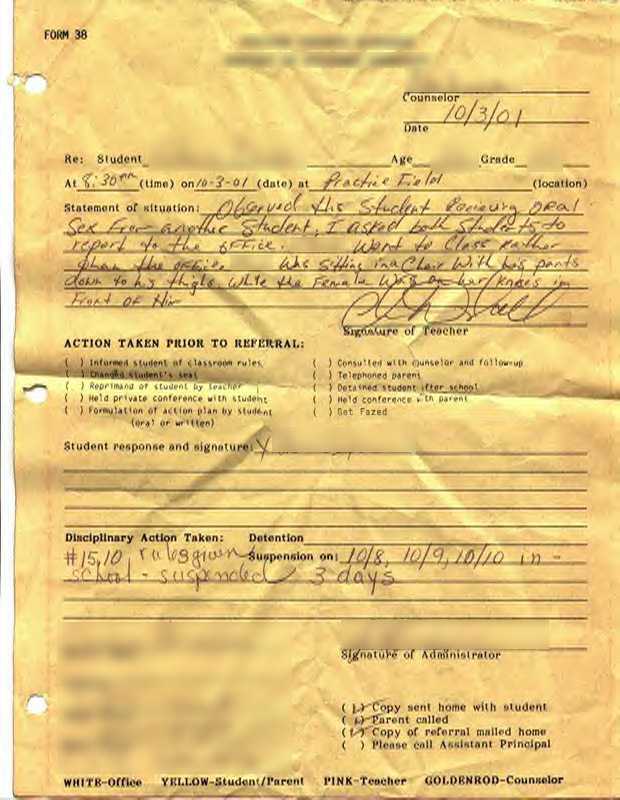 FORM 38
Counselor
10/3/01
Date
Re: Student Age Grade
At 8:30 (time) on 10-3-01 (date) at Practice Field (location)
Statement of situation: Observed this Student Recieving oral
Sex From another Student. I asked both Students to
report to the office. Went to Class Rather
than the office. Was Sitting in a Chair With his pants
down to his thighs While the Female Was on her knees in
Front of Him
Signature of Teacher
ACTION TAKEN PRIOR TO REFERRAL:
( ) Informed student of classroom rules ( ) Consulted with counselor and follow-up
( ) Changed student's seat ( ) Telephoned parent
( ) Reprimand of student by teacher ( ) Detained student after school
( ) Held private conference with student ( ) Held conference with parent
( ) Formulation of action plan by student ( ) Get Fazed
(oral or written)
Student response and signature:
Disciplinary Action Taken: Detention
#15,10 rules given Suspension on: 10/8, 10/9, 10/10 in-
school - suspended 3 days
Signature of Administrator
( ) Copy sent home with student
( ) Parent called
( ) Copy of referral mailed home
( ) Please call Assistant Principal
WHITE-Office YELLOW-Student/Parent PINK-Teacher GOLDENROD-Counselor